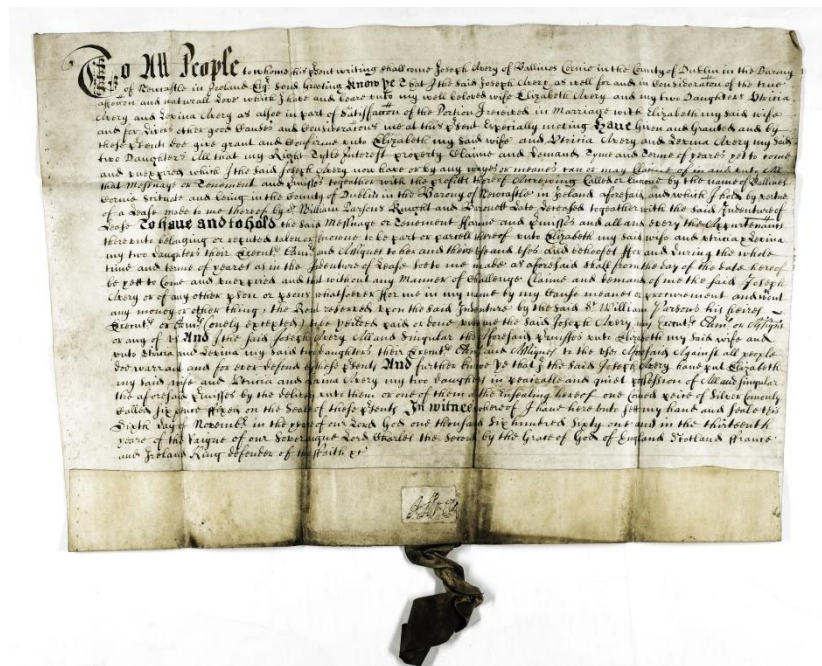 To All People to whome this psent writing shall come Joseph Avery of Ballines Cornie in the County of Dublin in the Barony
of Newcastle in Ireland sends Greeting Know ye That I the said Joseph Avery as well for and in Consideracon of the true
affeccon and naturall Love which I have and beare unto my well beloved wife Elizabeth Avery and my two Daughters Utricia
Avery and Lexina Avery as allso in part of Satisfaccon of the Portion I received in Marriage with Elizabeth my said wife
and for divers other good Causes and Consideracons me at this psent Especially moving Have Given and Granted and by
these psents doe give grant and Confirme unto Elizabeth my said wife and Utricia Avery and Lexina Avery my said
two Daughters All that my Right Tytle Interest property Claime and demand Tyme and terme of yeares yet to come
and unexpired which I the said Joseph Avery now have or by any wayes or meanes can or may Clayme of in and unto All
that Messuage or Tenement and pmisses together with the profitts thereof Called or knowne by the name of Ballines
Cornie Scituate and being in the County of Dublin in the Barony of Newcastle in Ireland aforesaid and which I hold by vertue
of a Lease made to me thereof by Sr William Parsons Knight and Baronett Late deceased together with the said Indenture of
Lease To have and to hold the said Messuage or Tenement Farme and pmisses and all and every the Appurtenants
thereunto belonging or reputed taken or knowne to be part or parcell thereof unto Elizabeth my said wife and Utricia & Lexina
my two daughters their and Assignes to her and their use and uses and behoofes For and during the whole
time and terme of yeares as in the Indenture of Lease soe to me made as aforesaid shall from the day of the date hereof
be yett to Come and unexpired and that without any Manner of Challenge Claime and demand of me the said Joseph
Avery or of any other pson or psons whatsoever For me in my name by my Cause meanes or procurement and without
any money or other thing the Rent reserved upon the said Indenture by the said Sr William Parsons his heires
or (onely excepted) to be paid or done unto me the said Joseph Avery my or Assignes
or any of us And I the said Joseph Avery All and Singular the aforesaid pmisses unto Elizabeth my said wife and
unto Utricia and Lexina my said two daughters their and Assignes to the use Aforesaid Against all people
doe warrant and for ever defend by these psents And further know ye that I the said Joseph Avery have put Elizabeth
my said wife and Utricia and Lexina Avery my two daughters in peaceable and quiet possession of All and singular
the aforesaid pmisses by the delivery unto them or one of them at the Ensealing hereof one Coined peice of Silver Comonly
called Sixpence fixed on the Seale of these psents In witnes whereof I have here unto sett my hand and seale this
Sixth day of in the yeare of our Lord God one thousand Six hundred Sixty one and in the thirteenth
yeare of the Raigne of our Soveraigne Lord Charles the Second by the Grace of God of England Scotland France
and Ireland King defender of the Faith